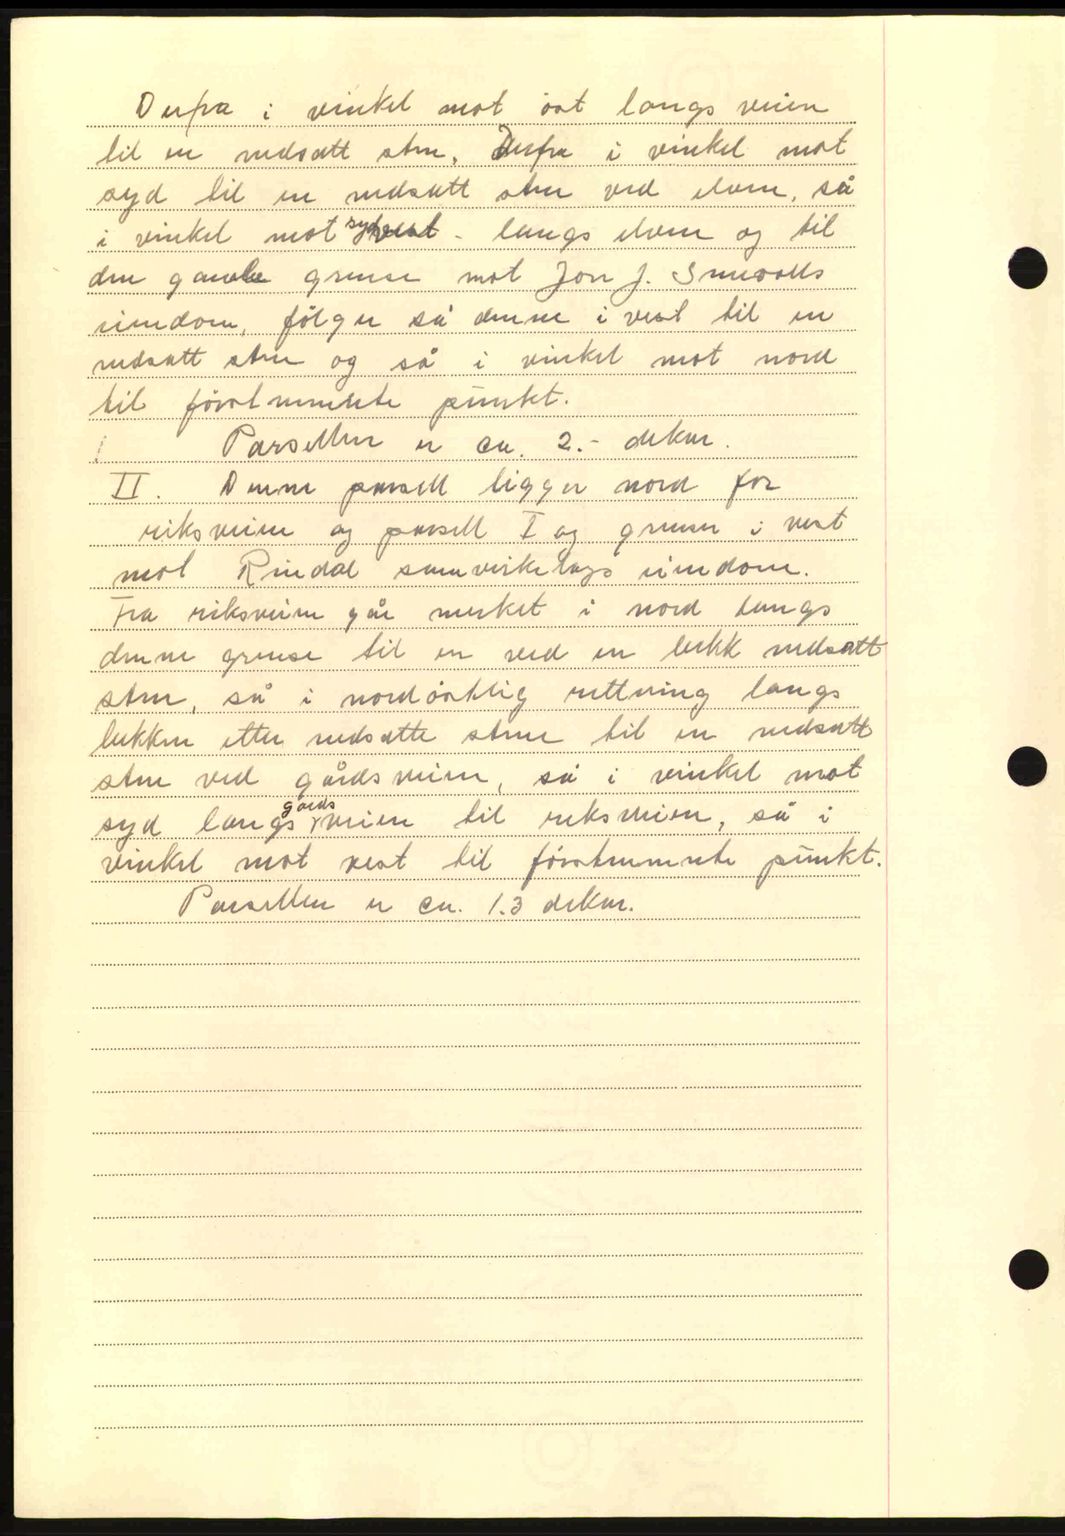 Derfra i vinkel mot öst langs veien
til en nedsatt sten. Derfra i vinkel mot
syd til en nedsatt sten ved elven, så
i vinkel mot syd vest - langs elven og til
den gamle grense mot Jon J.
eiendom, fölger så denne i vest til en
nedsatt sten og så i vinkel mot nord
til förstnevnte punkt.
Parsellen er ca. 2.- dekar.
II. Denne parsell ligger nord for
riksveien og parsell I og grenser i vest
mot Rindal samvirkelags eiendom.
Fra riksveien går merket i nord langs
denne grense til en ved en bekk nedsatt
sten, så i nordöstlig rettning langs
bekken etter nedsatte stene til en nedsatt
sten ved gårdsveien, så i vinkel mot
syd langs gårds veien til riksveien, så i
vinkel mot vest til förstnevnte punkt.
Parsellen er ca. 1.3 dekar.